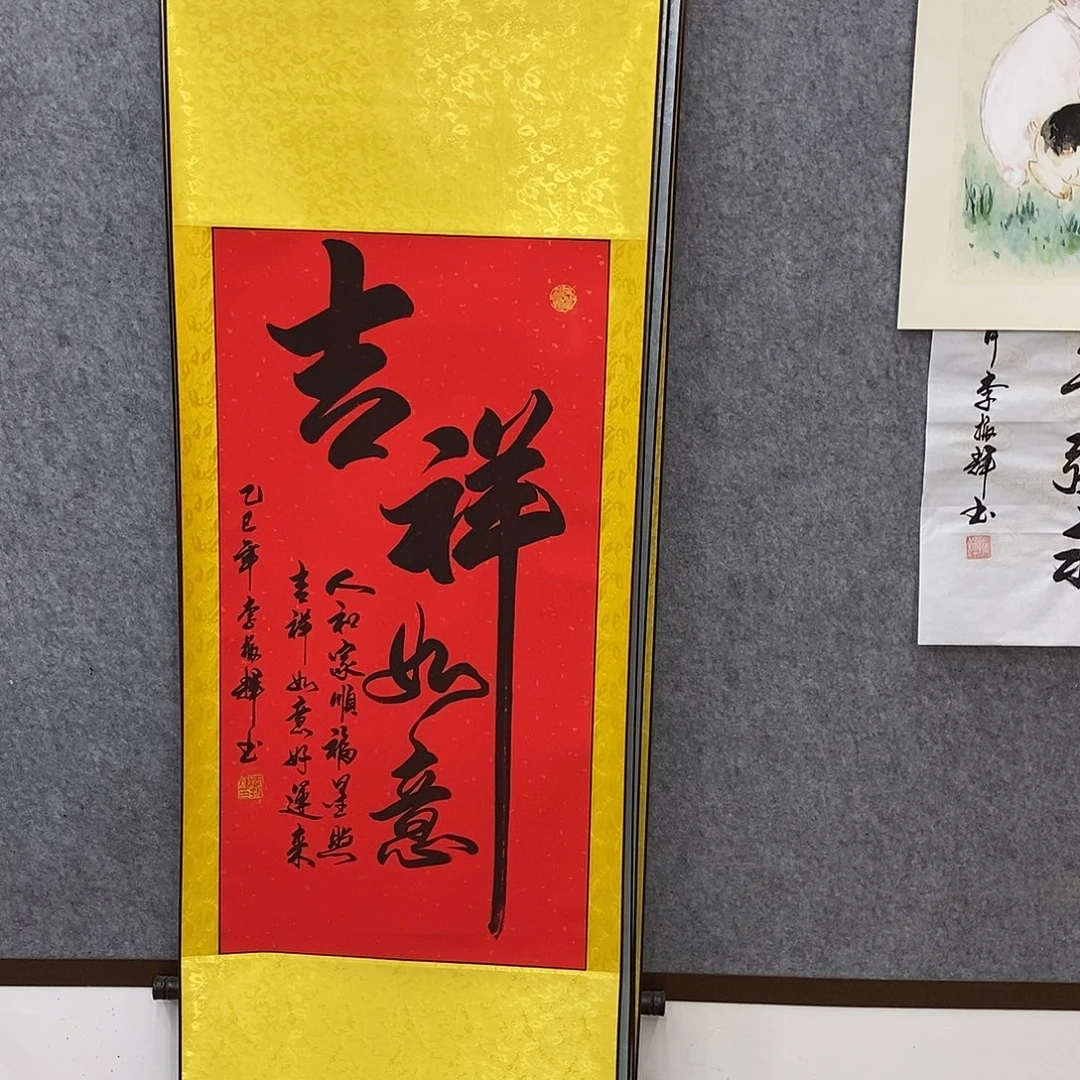 吉祥如意
人和家順福星照
吉祥如意好運來
乙巳年 李振輝书
李振輝书